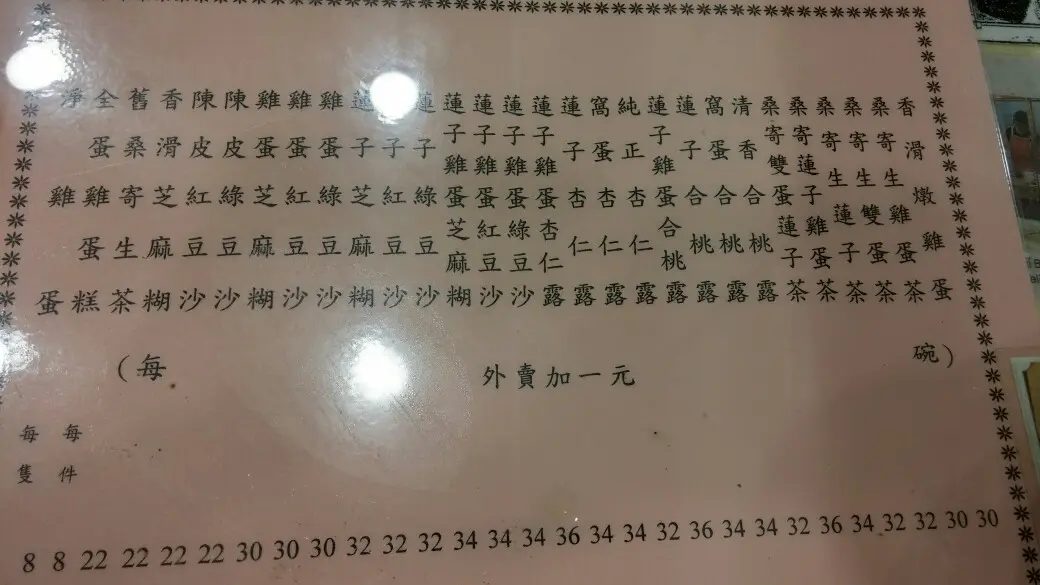 香滑燉雞蛋
桑寄生雞蛋茶
桑寄生雙蛋茶
桑寄生蓮子茶
桑寄蓮子雞蛋茶
桑寄雙蛋蓮子茶
清香合桃露
窩蛋合桃露
蓮子合桃露
蓮子雞蛋合桃露
純正杏仁露
窩蛋杏仁露
蓮子杏仁露
蓮子雞蛋杏仁露
蓮子雞蛋綠豆沙
蓮子雞蛋紅豆沙
蓮子雞蛋芝麻糊
蓮子綠豆沙
子紅豆沙
蓮子芝麻糊
雞蛋綠豆沙
雞蛋紅豆沙
雞蛋芝麻糊
陳皮綠豆沙
陳皮紅豆沙
香滑芝麻糊
舊桑寄生茶
全蛋雞蛋糕
淨雞蛋
(每 碗)
外賣加一元
每件
每隻
8 8 22 22 22 22 30 30 30 32 32 32 34 34 34 36 34 34 32 36 34 34 32 36 34 32 32 30 30